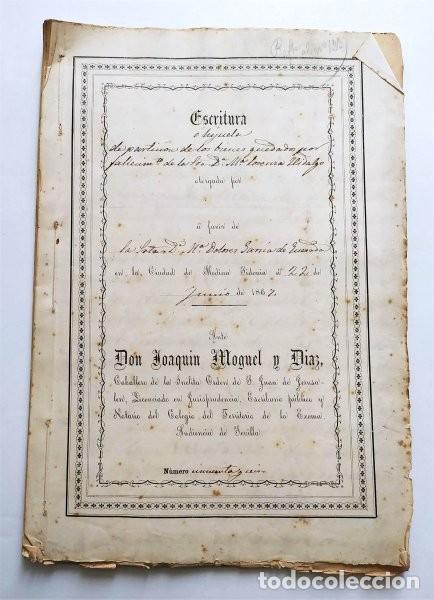 Escritura
o hijuela
de particion de los bienes quedados por
fallecimto. de la Sra. Da. Ma. Lorenza Hidalgo
otorgada por
á favor de
la Da. Ma. Dolores Garcia de
en la Ciudad de Medina Sidonia á 22 de
Junio de 1867.
Ante
Don Joaquin Moguel y Diaz,
Caballero de la Inclita Orden de S. Juan de Jerusa-
len, Licenciado en Jurisprudencia, Escribano público y
Notario del Colegio del Territorio de la Excma.
Audiencia de Sevilla.
Número
todocoleccion